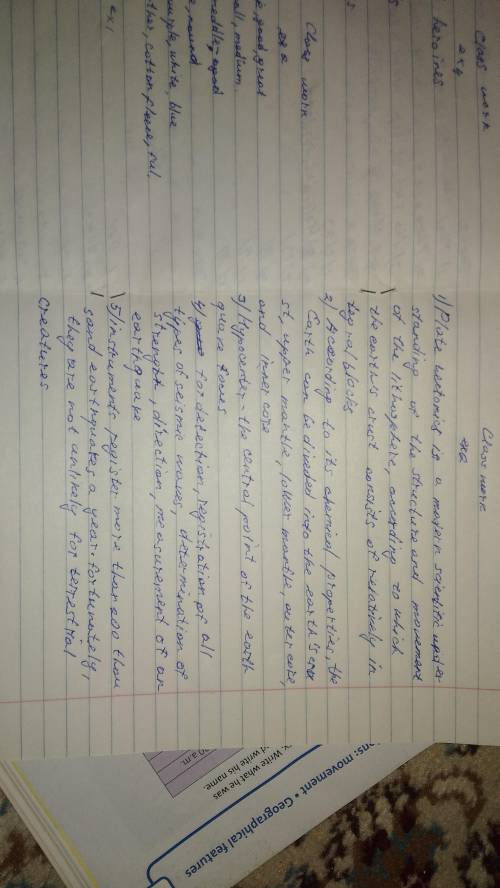 Class work
ex 4
heroines
s
Class work
ex 2
good, great
all, medium
middle-aged
round
purple, white, blue
ther, cotton, fleece, ful.
ex 1
Class work
ex 2
1) Plate tectonics is a modern scientific under-
standing of the structure and movement
of the lithosphere, according to which
the earth's crust consists of relatively in
tegral blocks
2) According to its chemical properties, the
Earth can be divided into the earth's cru
st, upper mantle, lower mantle, outer core,
and inner core
3) Hypocenter - the central point of the earth
quare focus
4) for detection, registration of all
types of seismic waves, determination of
strenght, direction, measurement of an
earthquake
5) instruments register more than 200 thou
sand earthquakes a year. fortunately,
they are not unlikely for terrestrial
creatures
ons: movement • Geographical features
x. Write what he was
d write his name.
0 a.m.